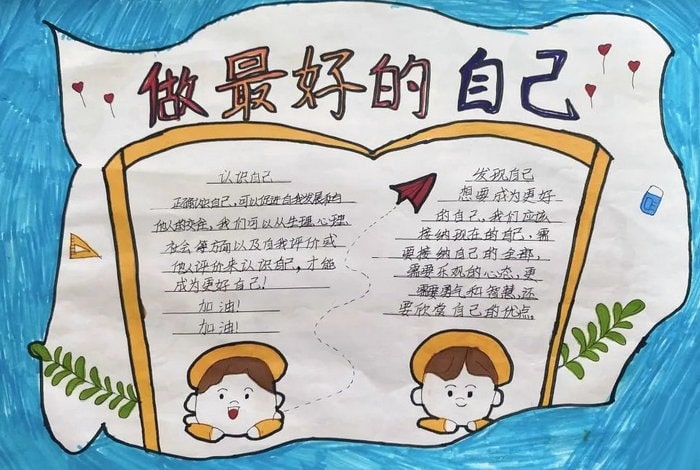 做最好的自己
认识自己
正确认识自己,可以促进自我发展和与
他人的交往,我们可以从生理心理
社会等方面以及自我评价或
他人评价来认识自己,才能
成为更好自己!
加油!
加油!
发现自己
想要成为更好
的自己,我们应该
接纳现在的自己,需
要接纳自己的全部,
需要乐观的心态,更
需要勇气和智慧,还
要欣赏自己的优点。